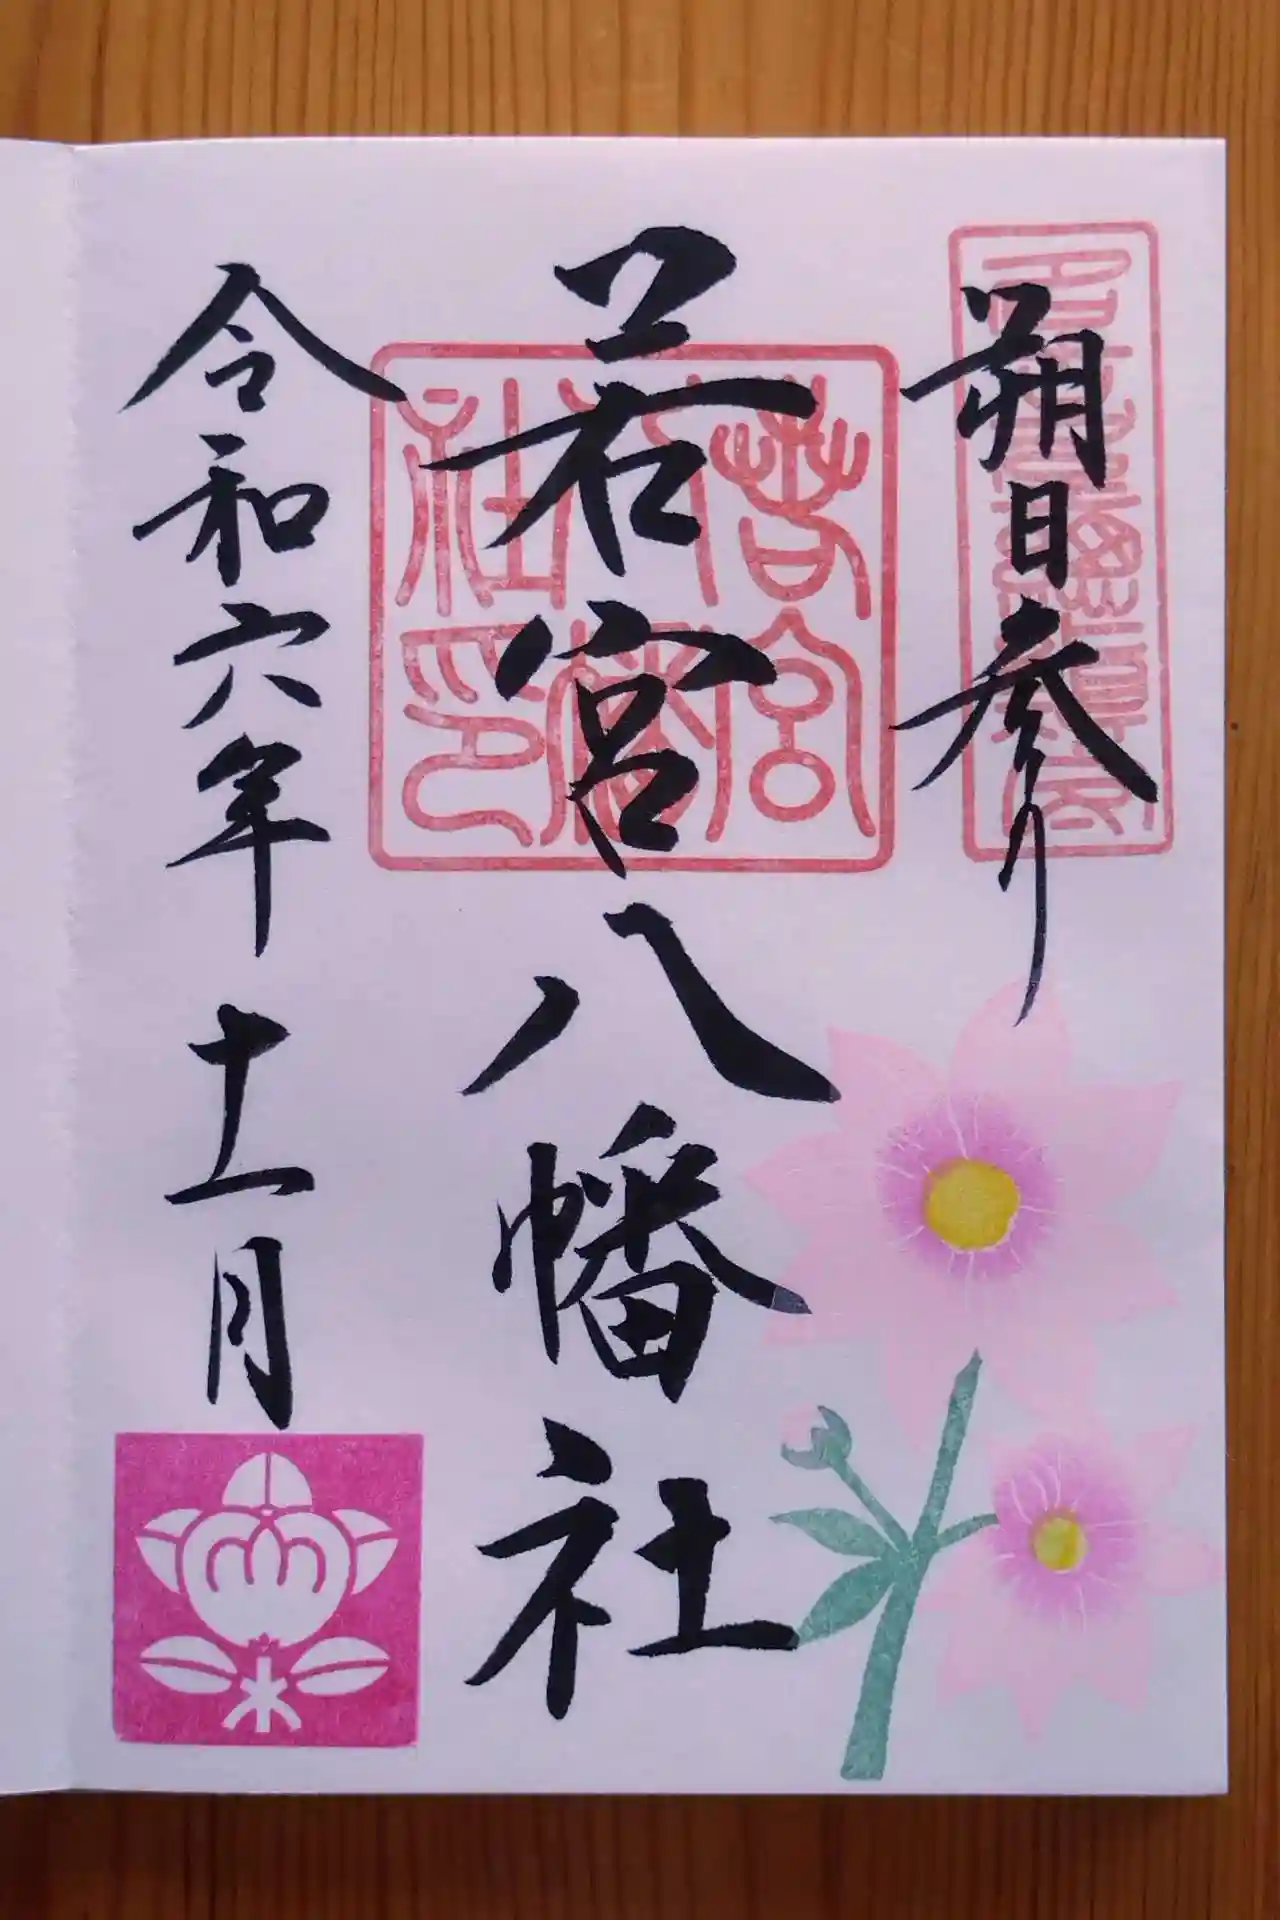 朔日参り
若宮八幡社
若宮
八幡
社印
令和六年 十一月